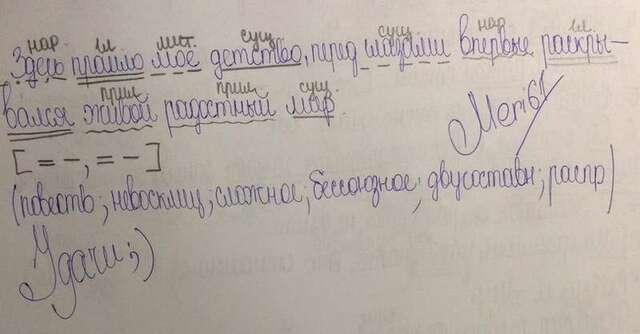 нар. гл. мест. сущ. сущ. нар. гл.
Здесь прошло моё детство, перед глазами впервые раскры-
прил. прил. сущ.
вался живой радостный мир.
[= -, = -]
Meri61
(повеств.; невосклиц; сложное; бессоюзное; двусоставн; распр)
Удачи ;)